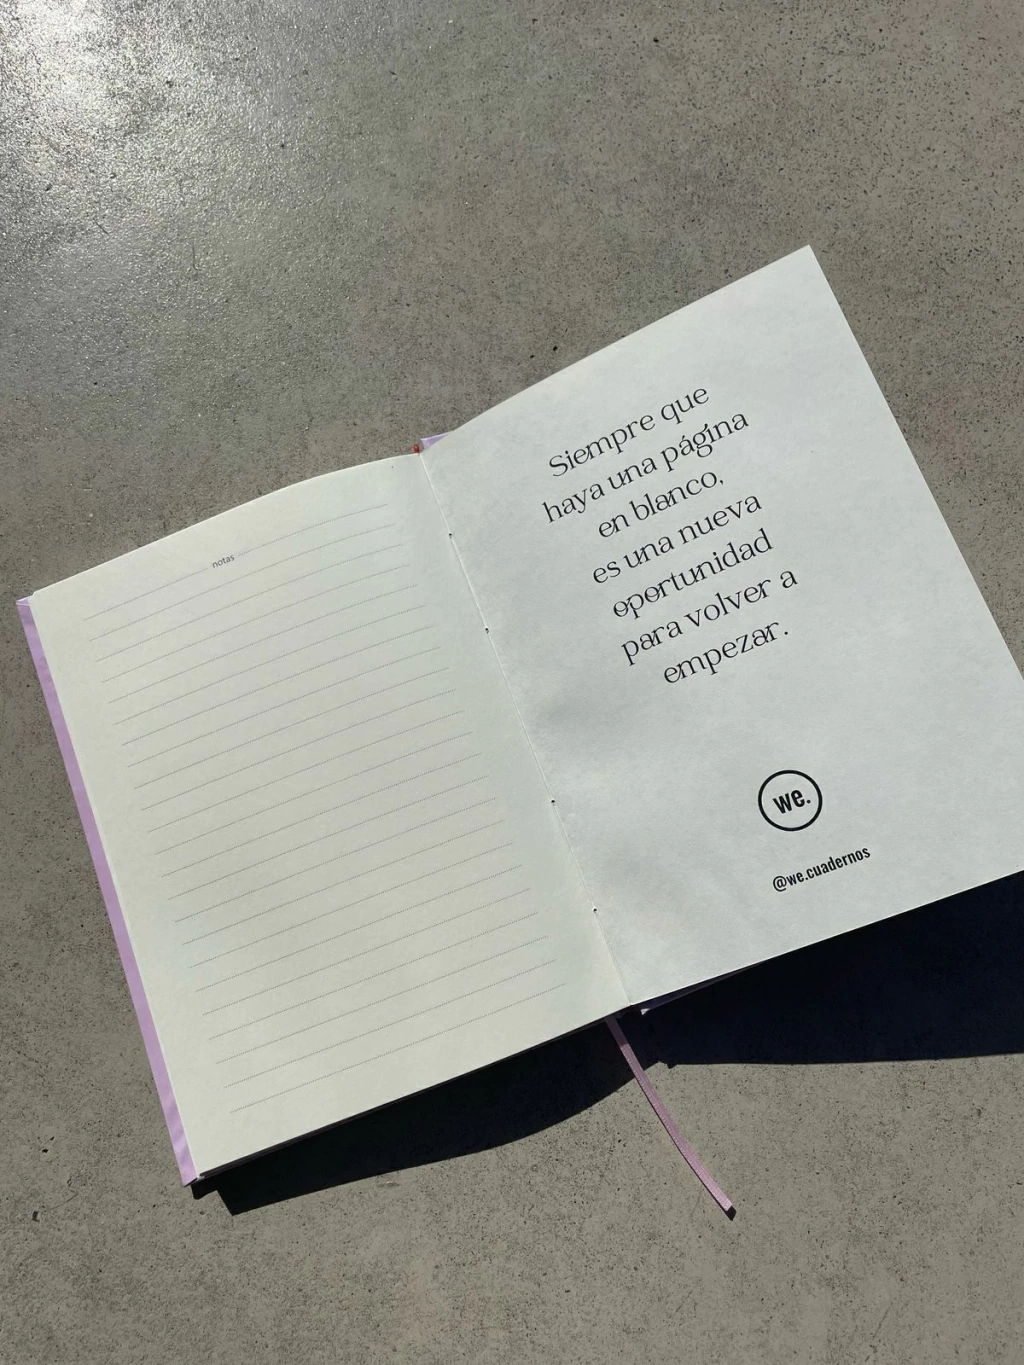 notas
Siempre que
haya una página
en blanco,
es una nueva
oportunidad
para volver a
empezar.
we.
@we.cuadernos